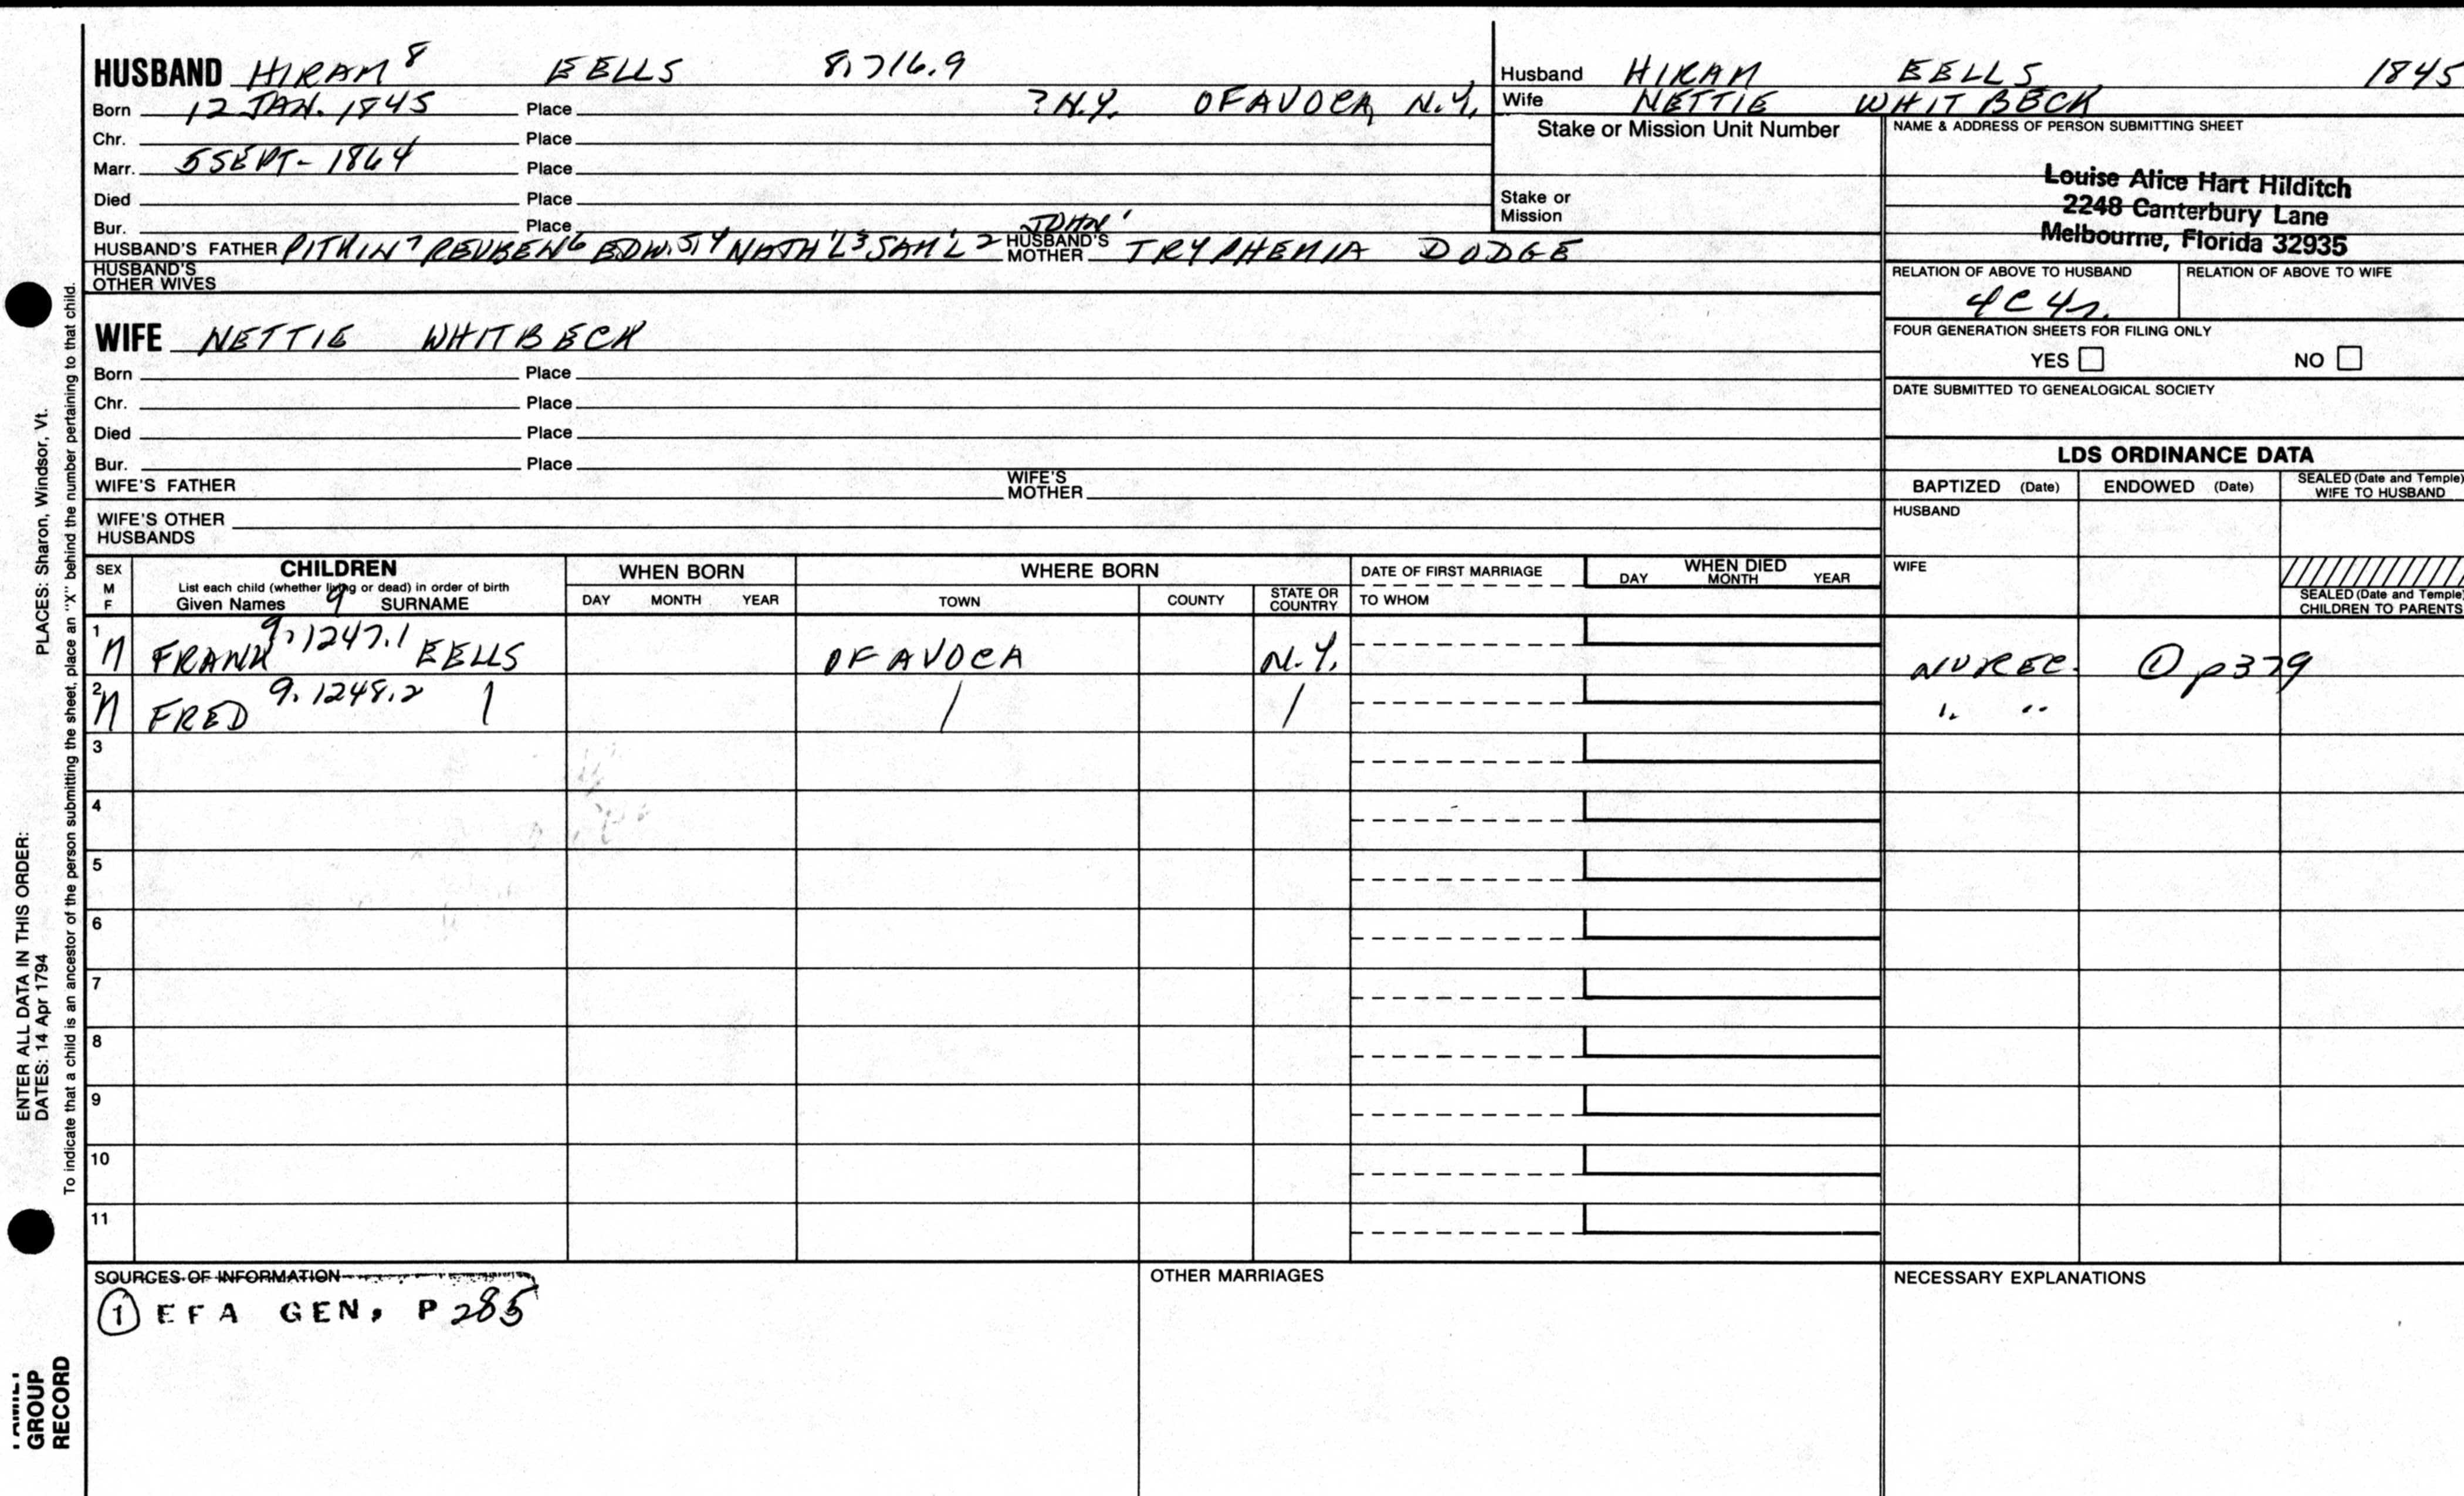 HUSBAND HIRAM⁸ EELLS 8,716.9
Born 12 JAN. 1845 Place ? N.Y. OF AVOCA, N.Y.
Chr. Place
Marr. 5 SEPT- 1864 Place
Died Place
Bur. Place
HUSBAND'S FATHER PITKIN⁷ REUBEN⁶ EDW.⁵,⁴ NATH'L³ SAM'L² JOHN¹ HUSBAND'S MOTHER TRYPHENIA DODGE
HUSBAND'S OTHER WIVES
WIFE NETTIE WHITBECK
Born Place
Chr. Place
Died Place
Bur. Place
WIFE'S FATHER WIFE'S MOTHER
WIFE'S OTHER HUSBANDS
Husband HIRAM EELLS 1845
Wife NETTIE WHITBECK
Stake or Mission Unit Number
Stake or Mission
NAME & ADDRESS OF PERSON SUBMITTING SHEET
Louise Alice Hart Hilditch
2248 Canterbury Lane
Melbourne, Florida 32935
RELATION OF ABOVE TO HUSBAND RELATION OF ABOVE TO WIFE
4C4r.
FOUR GENERATION SHEETS FOR FILING ONLY
YES NO
DATE SUBMITTED TO GENEALOGICAL SOCIETY
LDS ORDINANCE DATA
BAPTIZED (Date) ENDOWED (Date) SEALED (Date and Temple) WIFE TO HUSBAND
HUSBAND
WIFE
SEALED (Date and Temple) CHILDREN TO PARENTS
SEX M F CHILDREN WHEN BORN WHERE BORN DATE OF FIRST MARRIAGE WHEN DIED
List each child (whether living or dead) in order of birth
Given Names 9 SURNAME DAY MONTH YEAR TOWN COUNTY STATE OR COUNTRY TO WHOM DAY MONTH YEAR
1 M FRANK 9,1247.1 EELLS OF AVOCA N.Y. NUREC. ① p379
2 M FRED 9.1248.2 | / / " "
3
4
5
6
7
8
9
10
11
SOURCES OF INFORMATION OTHER MARRIAGES NECESSARY EXPLANATIONS
① EFA GEN, P 285
PLACES: Sharon, Windsor, Vt.
ENTER ALL DATA IN THIS ORDER:
DATES: 14 Apr 1794
To indicate that a child is an ancestor of the person submitting the sheet, place an "X" behind the number pertaining to that child.
FAMILY GROUP RECORD